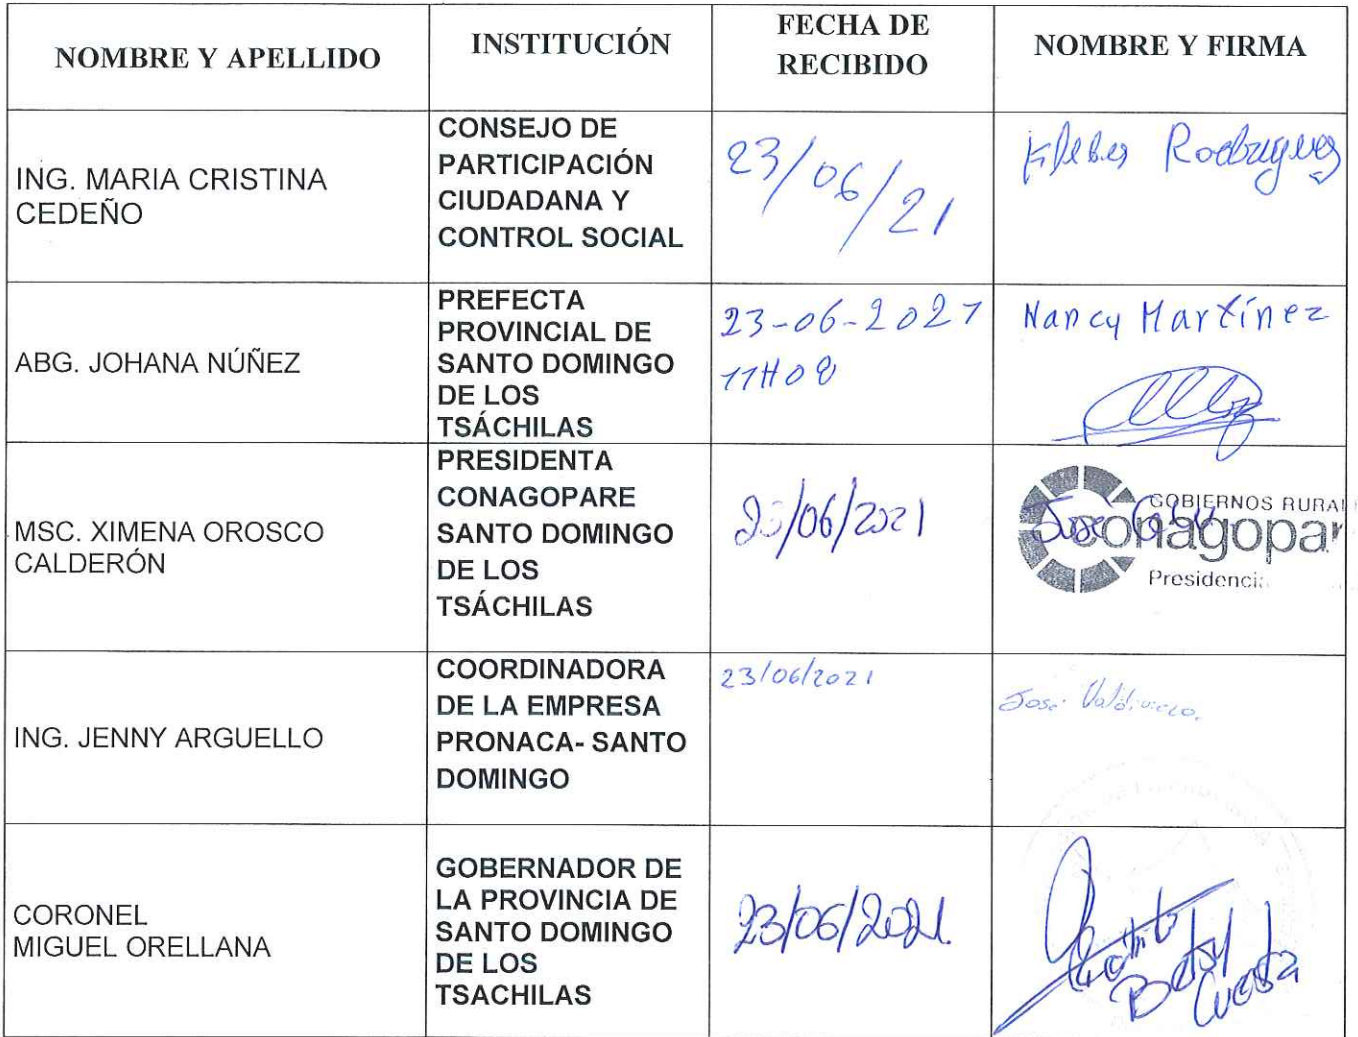 NOMBRE Y APELLIDO
INSTITUCIÓN
FECHA DE
RECIBIDO
NOMBRE Y FIRMA
ING. MARIA CRISTINA
CEDEÑO
CONSEJO DE
PARTICIPACIÓN
CIUDADANA Y
CONTROL SOCIAL
23/06/21
Kleber Rodriguez
ABG. JOHANA NÚÑEZ
PREFECTA
PROVINCIAL DE
SANTO DOMINGO
DE LOS
TSÁCHILAS
23-06-2021
11H08
Nancy Martínez
MSC. XIMENA OROSCO
CALDERÓN
PRESIDENTA
CONAGOPARE
SANTO DOMINGO
DE LOS
TSÁCHILAS
23/06/2021
GOBIERNOS RURAL
conagopar
José
Presidencia
ING. JENNY ARGUELLO
COORDINADORA
DE LA EMPRESA
PRONACA- SANTO
DOMINGO
23/06/2021
José Valdivieso.
CORONEL
MIGUEL ORELLANA
GOBERNADOR DE
LA PROVINCIA DE
SANTO DOMINGO
DE LOS
TSACHILAS
23/06/2021
Betsy
Cuesta